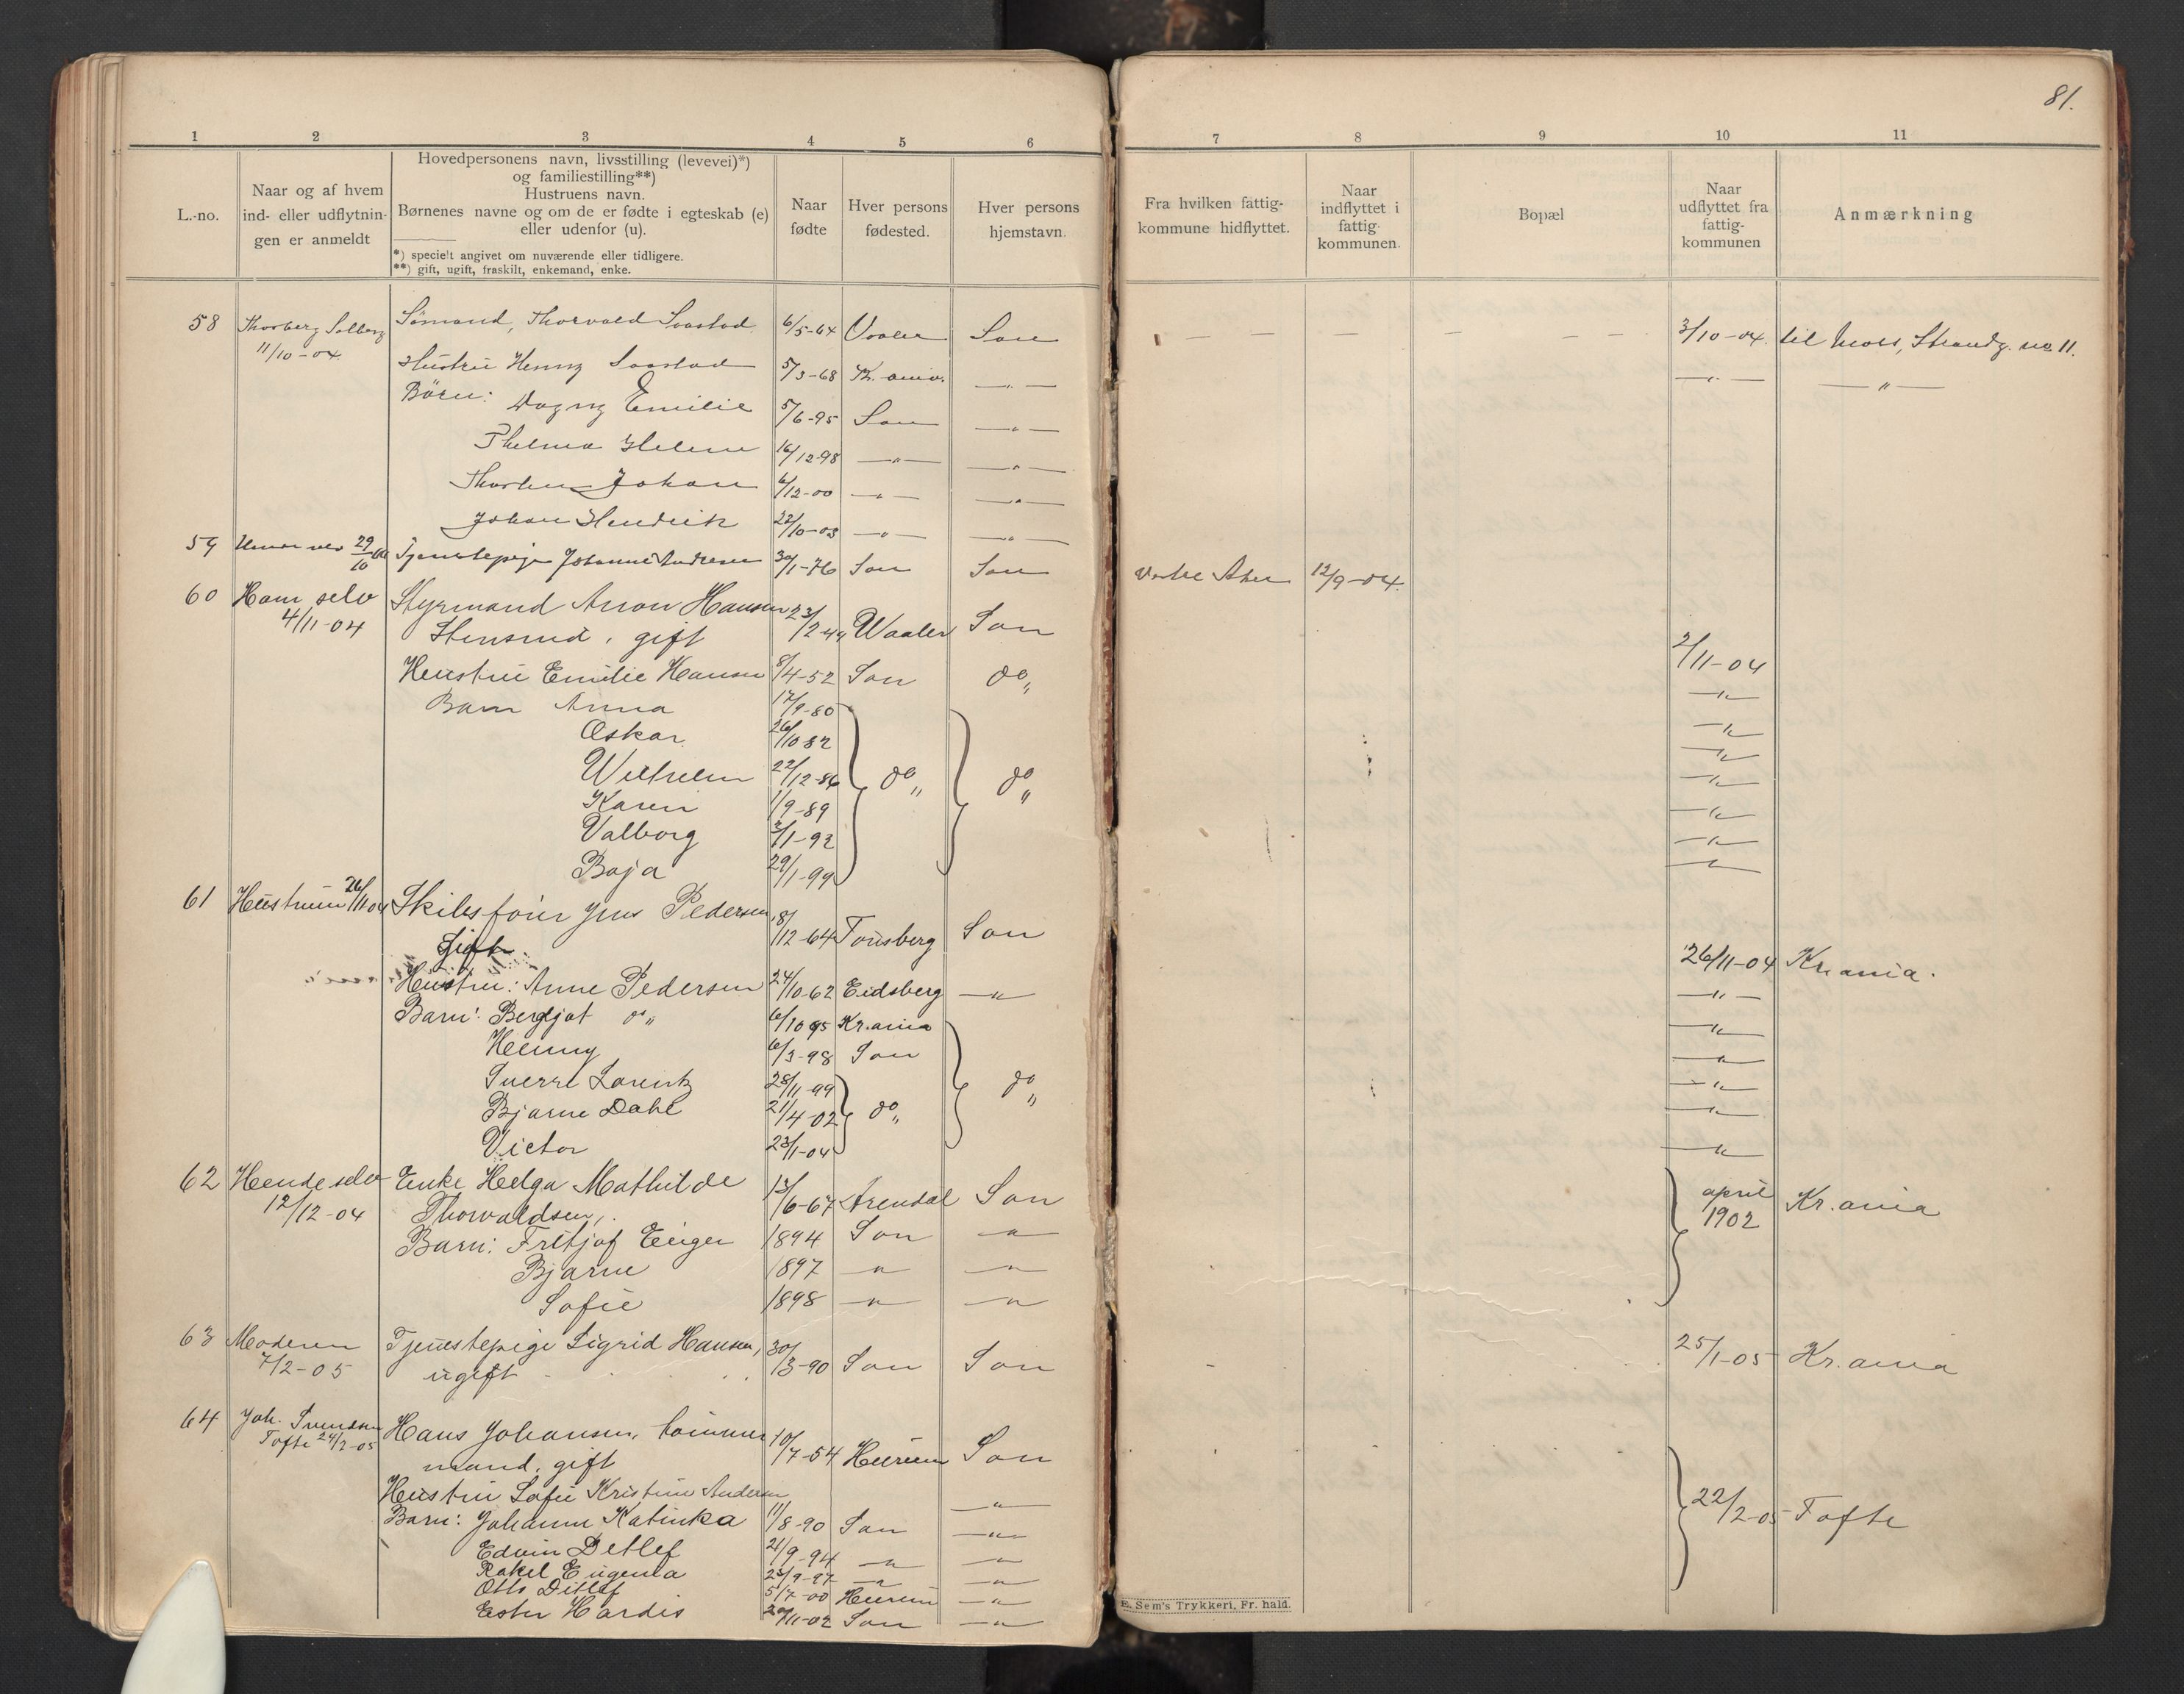 81.
1 2 3 4 5 6 7 8 9 10 11
L.-no.
Naar og af hvem
ind- eller udflytnin-
gen er anmeldt
Hovedpersonens navn, livsstilling (levevei)*)
og familiestilling**)
Hustruens navn.
Børnenes navne og om de er fødte i egteskab (e)
eller udenfor (u).
*) specielt angivet om nuværende eller tidligere.
**) gift, ugift, fraskilt, enkemand, enke.
Naar
fødte
Hver persons
fødested.
Hver persons
hjemstavn.
Fra hvilken fattig-
kommune hidflyttet.
Naar
indflyttet i
fattig
kommunen.
Bopæl
Naar
udflyttet fra
fattig-
kommunen
Anmærkning
58 Thorberg Solberg Sømand, Thorvald Saastad 6/5-64 Vaaler Son — — — — — 3/10-04. til Moss, Strandg. no 11.
11/10-04.
Hustru Henny Saastad 5/3-68 Kr.ania. —"— —"— —"—
Børn: Dagny Emilie 5/6-95 Son —"—
Thelma Helene 16/12-98 —"— —"—
Thorleif Johan 6/12-00 —"— —"—
Johan Hendrik 22/10-03 —"— —"—
59 29/10 Tjenestepige Johanne Andresen 30/1-76 Son Son Vestre Aker 12/9-04.
60 Ham selv Styrmand Anon Hansen 23/2-49 Waaler Son
4/11-04 Stensrud, gift 2/11-04
Hustru Emilie Hansen 8/4-52 Son do„ —"—
Barn Anna 17/9-80 —"—
Oskar 26/10 82 —"—
Wilhelm 22/12-86 do„ do„ —"—
Karen 1/9-89 —"—
Valborg 2/1-92 —"—
Boja 29/1-99 —"—
61 Hustruen 26/11 04 Skibsfører Jens Pedersen, 18/12-64 Tønsberg Son
Gift 26/11-04 Kr.ania.
Hustru: Anne Pedersen 24/10-62 Eidsberg —"— —"—
Barn: Bergljot do„ 6/10 95 Kr.ania —"—
Henny 6/3-98 Son —"—
Sverre Lorentz 28/11-99 do„ —"—
Bjarne Dahl 21/4-02 do„ —"—
Victor 23/1-04 —"—
62 Hende selv Enke Helga Mathilde 12/6-67 Arendal Son april 1902 Kr.ania
12/12-04 Thorvaldsen,
Barn: Fritjof Einger 1894 Son —"—
Bjarne 1897 —"— —"—
Sofie 1898 —"— —"—
63 Moderen Tjenestepige Sigrid Hansen, 30/3-90 Son Son 25/1-05 Kr.ania
7/2-05 ugift
64 Joh. Svendsen Hans Johansen, tømmer 10/7-54 Hurum Son
Tofte 24/2-05 mand, gift
Hustru Sofie Kristine Andersen —"— 22/2-05 Tofte
Barn: Johanne Katinka 11/8-90 Son —"—
Edvin Detlef 21/9-94 —"— —"—
Rakel Eugenia 25/9-97 —"— —"—
Otto Ditlef 5/7-00 Hurum —"—
Ester Hardis 20/11-02 Son —"—
E. Sem's Trykkeri, Fr. hald.